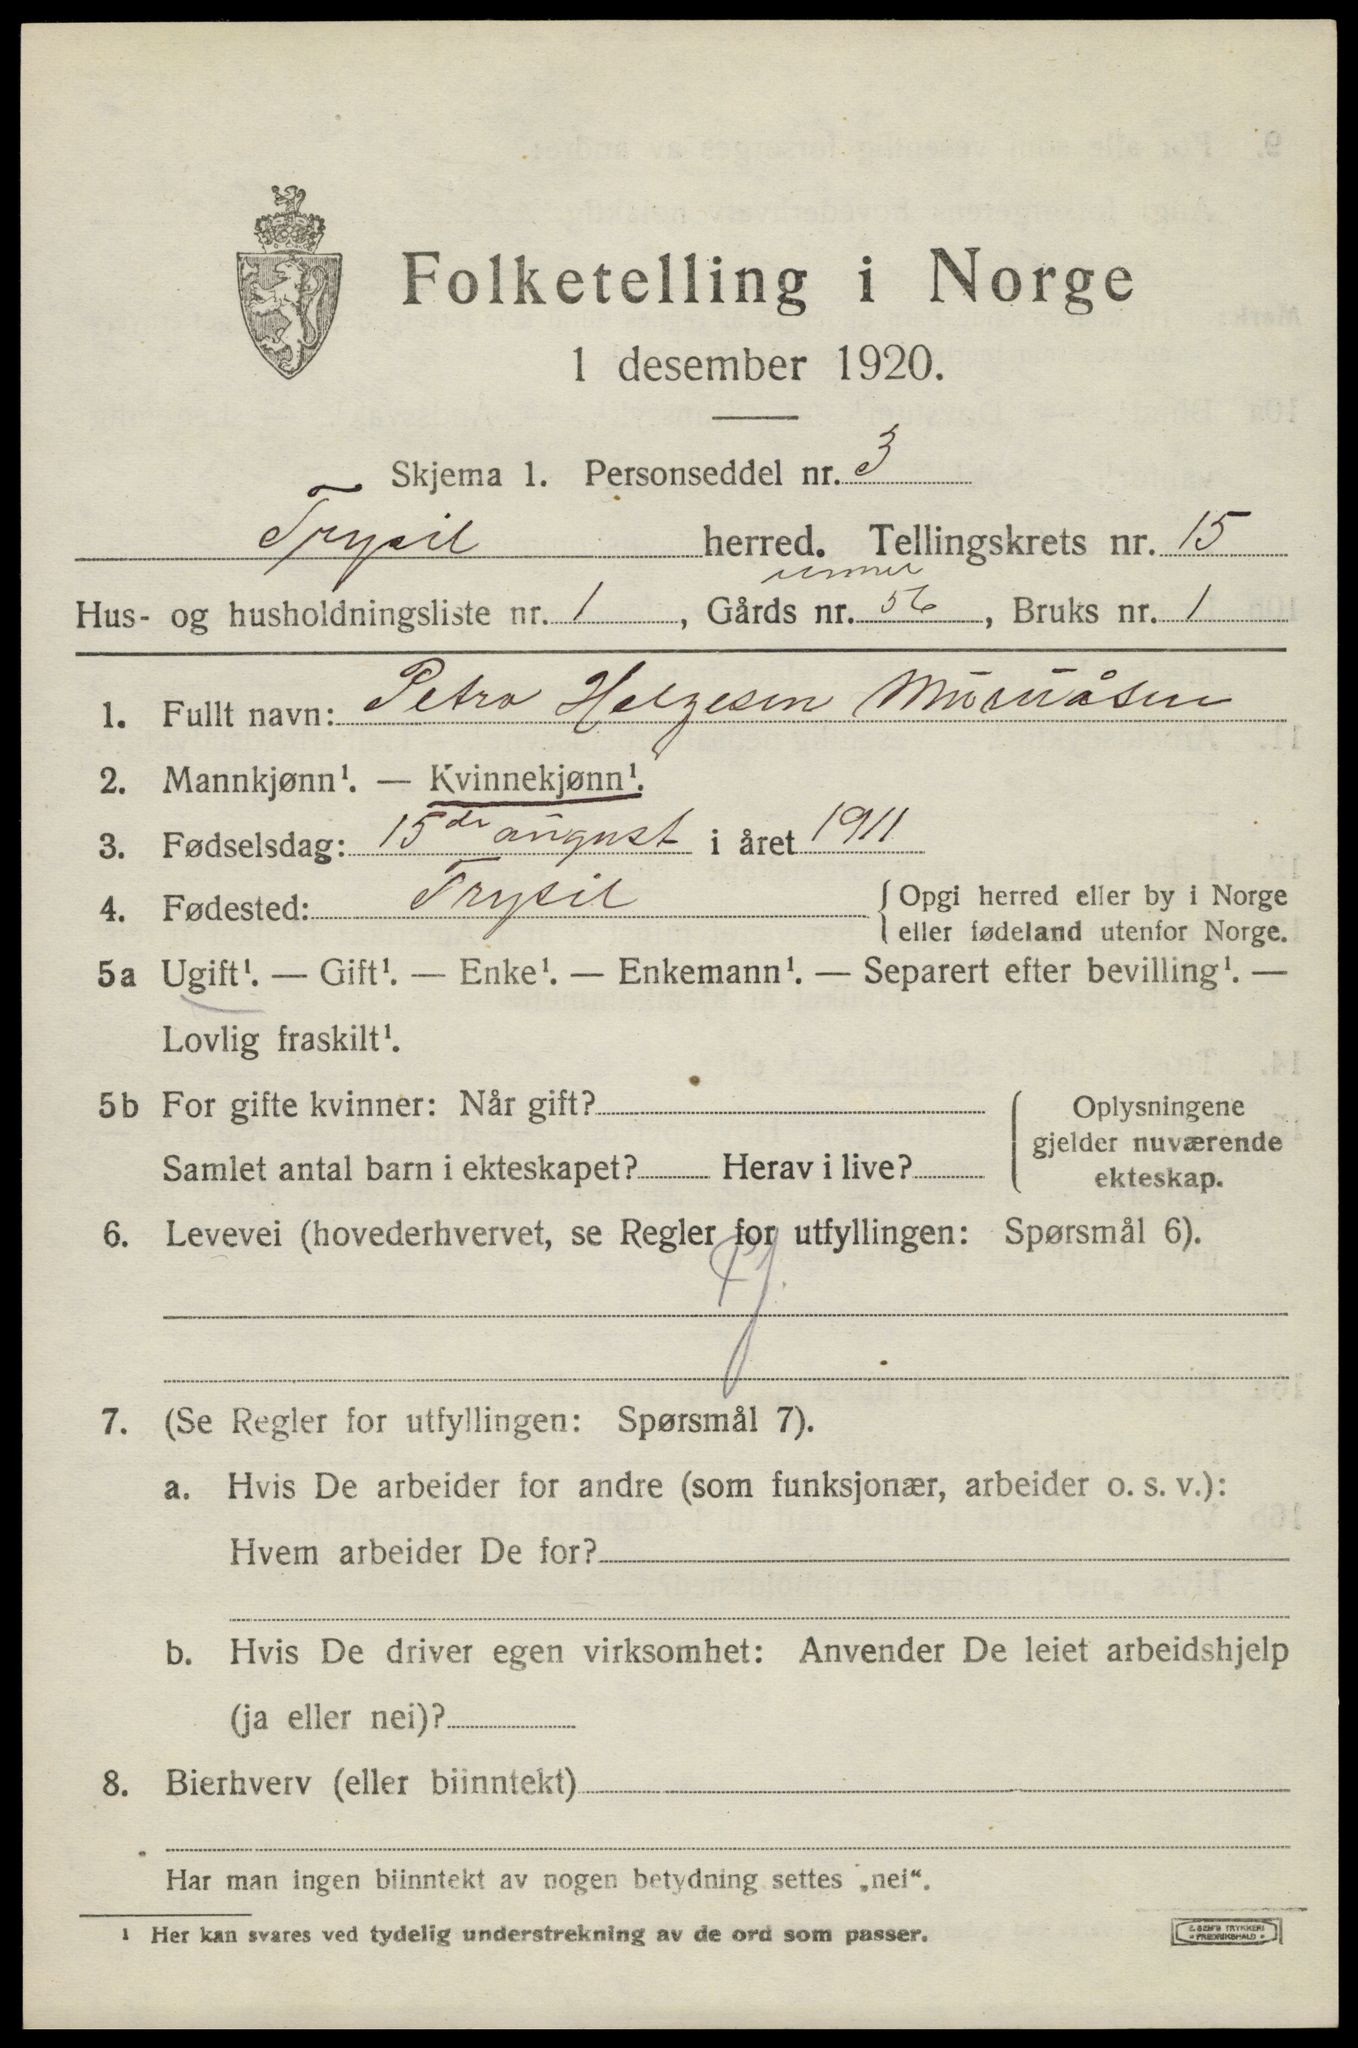 Folketelling i Norge
1 desember 1920.
Skjema 1. Personseddel nr. 3
Trysil herred. Tellingskrets nr. 15
Hus- og husholdningsliste nr. 1, Gårds nr. 56, Bruks nr. 1
1. Fullt navn: Petra Helgesen
2. Mannkjønn¹. — Kvinnekjønn¹.
3. Fødselsdag: 15de august i året 1911
4. Fødested: Trysil { Opgi herred eller by i Norge
eller fødeland utenfor Norge.
5a Ugift¹. — Gift¹. — Enke¹. — Enkemann¹. — Separert efter bevilling¹. —
Lovlig fraskilt¹.
5b For gifte kvinner: Når gift?
Samlet antal barn i ekteskapet? Herav i live?
Oplysningene
gjelder nuværende
ekteskap.
6. Levevei (hovederhvervet, se Regler for utfyllingen: Spørsmål 6).
7. (Se Regler for utfyllingen: Spørsmål 7).
a. Hvis De arbeider for andre (som funksjonær, arbeider o. s. v.):
Hvem arbeider De for?
b. Hvis De driver egen virksomhet: Anvender De leiet arbeidshjelp
(ja eller nei)?
8. Bierhverv (eller biinntekt)
Har man ingen biinntekt av nogen betydning settes „nei“.
¹ Her kan svares ved tydelig understrekning av de ord som passer.
TRYKKERI
FREDRIKSHALD